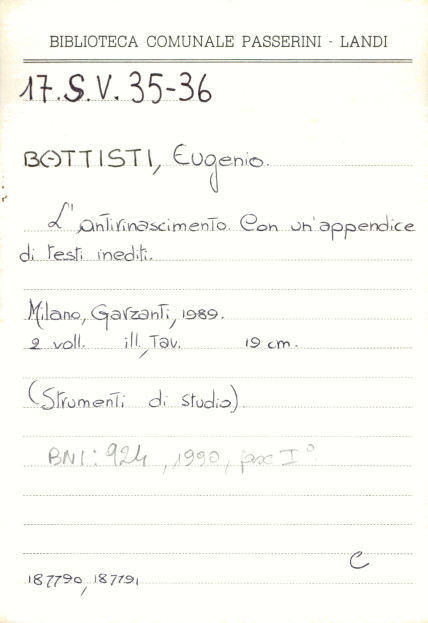 BIBLIOTECA COMUNALE PASSERINI - LANDI
17.S.V. 35-36
BATTISTI, Eugenio.
L'antirinascimento. Con un'appendice
di testi inediti.
Milano, Garzanti, 1989.
2 voll. ill., tav. 19 cm.
(Strumenti di studio)
BNI: 924, 1990, fasc I°
C
187790, 187791